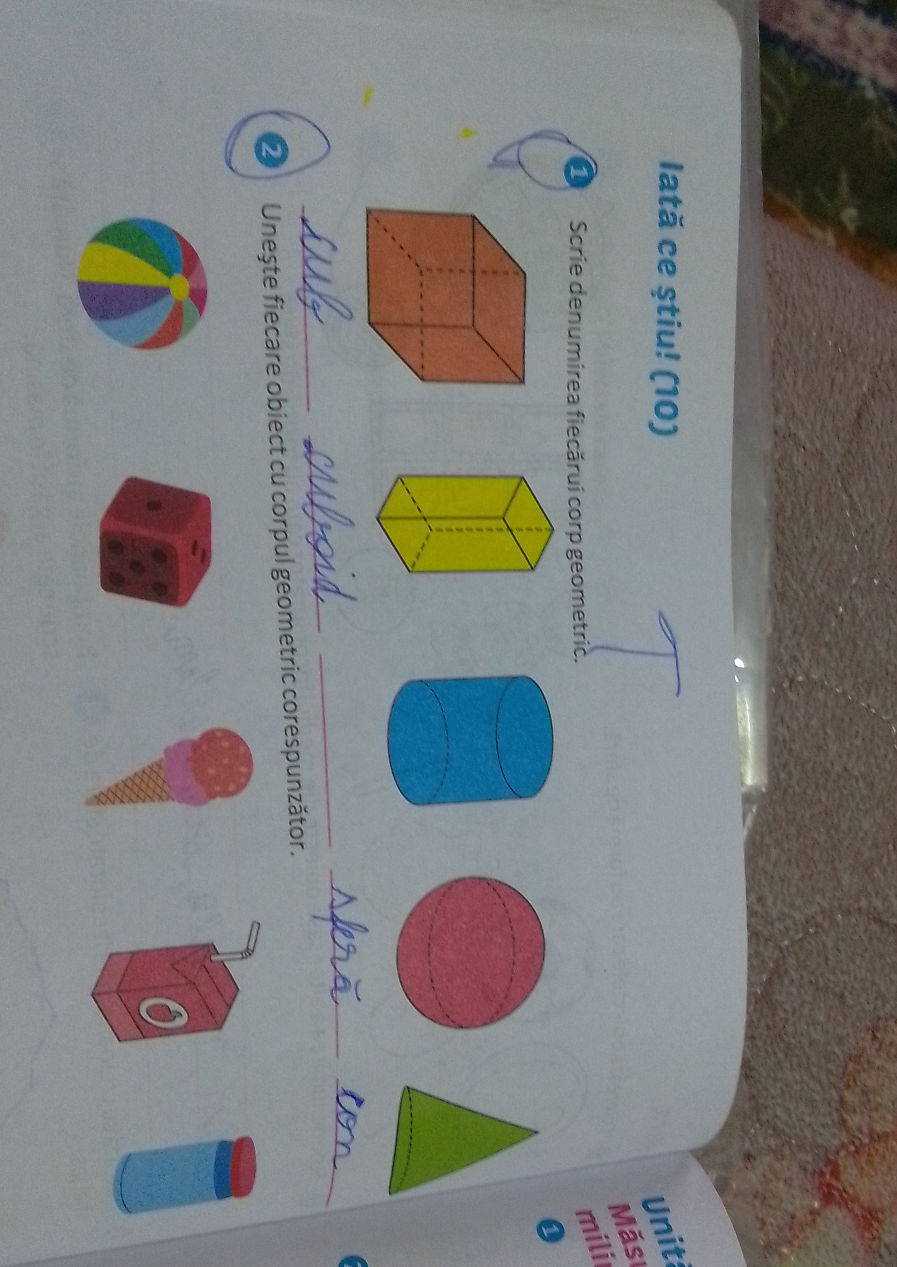 Iată ce știu! (10)
T
1 Scrie denumirea fiecărui corp geometric.
cub cuboid sferă con
2 Unește fiecare obiect cu corpul geometric corespunzător.
1